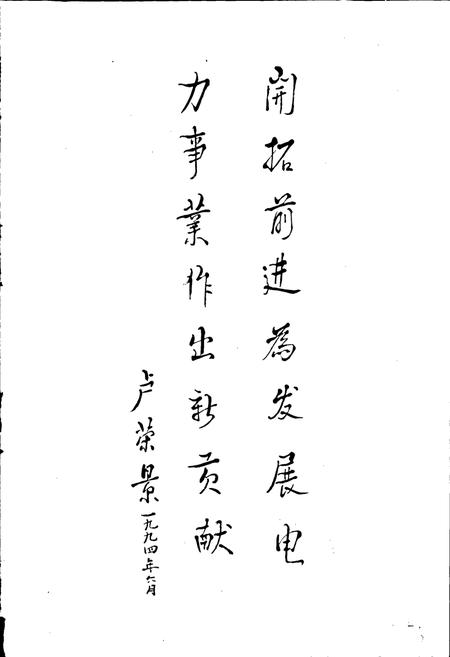 開拓前进為发展电
力事業作出新贡献
卢荣景一九九四年六月